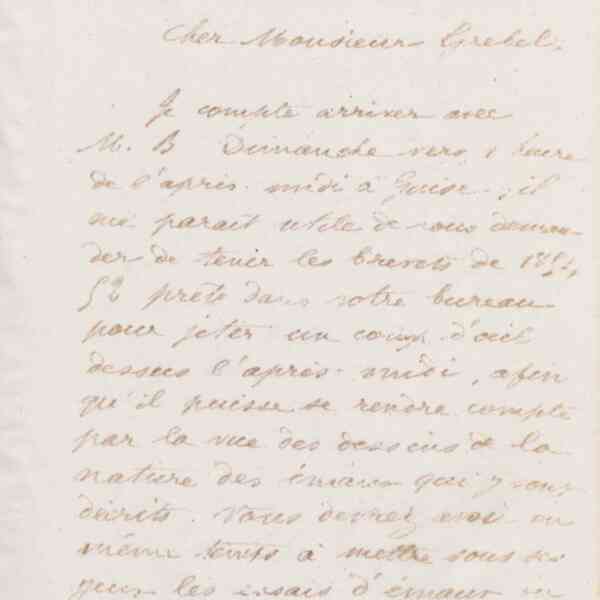 Cher Monsieur Grebel,
Je compte arriver avec
M. B Dimanche vers 1 heure
de l'après-midi à Guise; il
me parait utile de vous deman-
der de tenir les brevets de
52 prêts dans votre bureau
pour jeter un coup d'œil
dessus l'après-midi, afin
qu'il puisse se rendre compte
par la vue des dessins de la
nature des émaux qui y sont
décrits. Vous devrez avoir en
même temps à mettre sous ses
yeux les essais d'émaux en